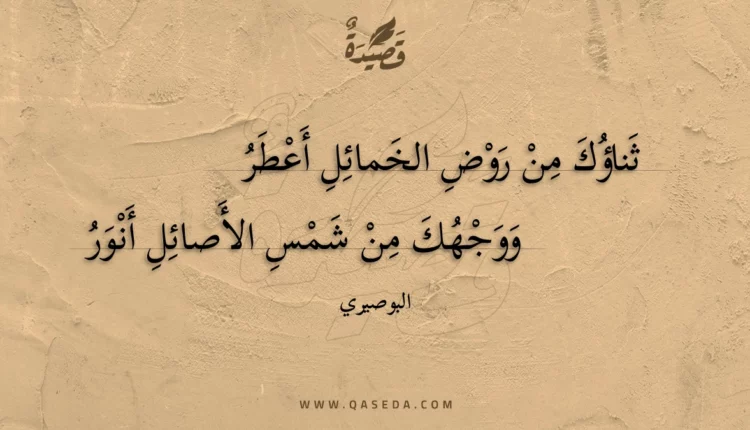 قَصِيدَةٌ
ثَناؤُكَ مِنْ رَوْضِ الخَمائِلِ أَعْطَرُ
وَوَجْهُكَ مِنْ شَمْسِ الأَصائِلِ أَنْوَرُ
البوصيري
WWW.QASEDA.COM